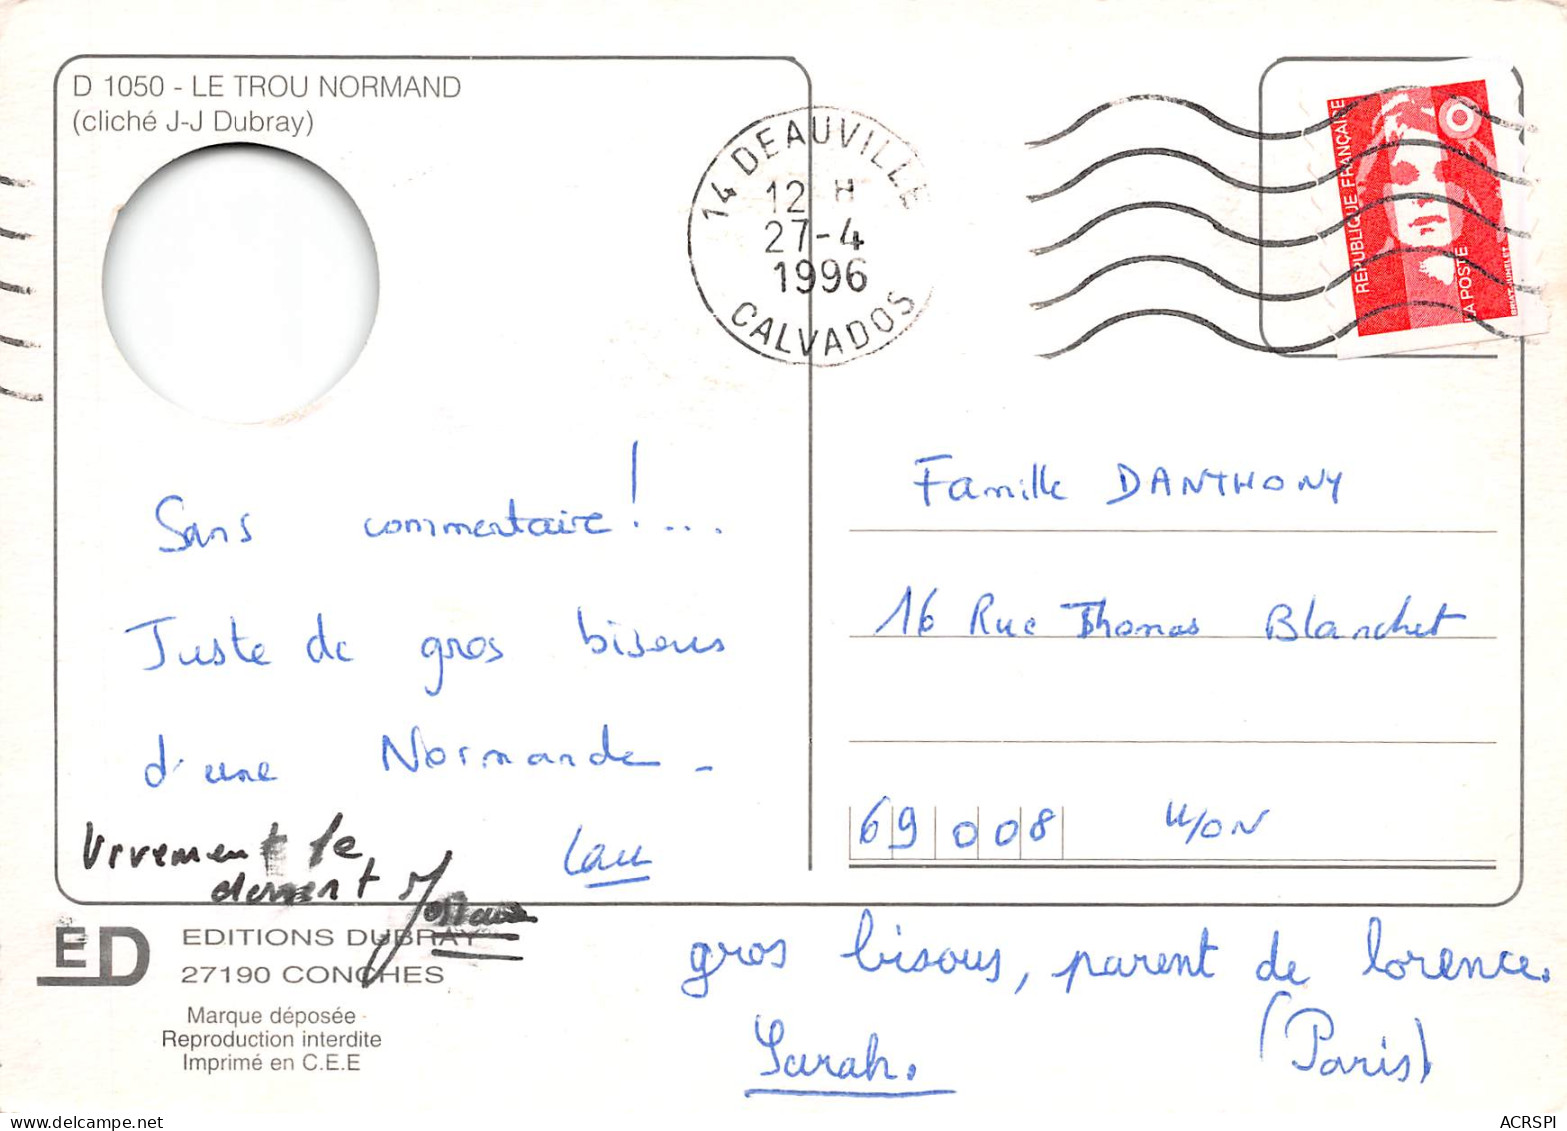 D 1050 - LE TROU NORMAND
(cliché J-J Dubray)
14 DEAUVILLE
12 H
27-4
1996
CALVADOS
REPUBLIQUE FRANÇAISE
LA POSTE
Sans commentaire !...
Juste de gros bisous
d'une Normande -
Lau
Vivement le
Famille DANTHONY
16 Rue Thomas Blanchet
69008 LYON
ED
EDITIONS DUBRAY
27190 CONCHES
Marque déposée
Reproduction interdite
Imprimé en C.E.E
gros bisous, parent de lorence.
Sarah. (Paris)
ACRSPI
www.delcampe.net